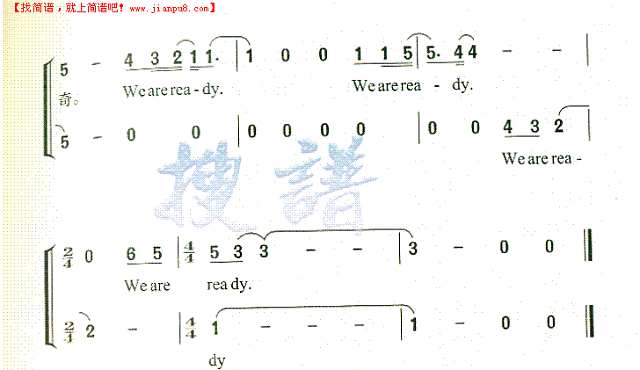 【找简谱，就上简谱吧！www.jianpu8.com】
5 - 4 3 2 1 1. | 1 0 0 1 1 5 | 5. 4 4 - - |
奇。 We are rea - dy. We are rea - dy.
5 - 0 0 | 0 0 0 0 | 0 0 4 3 2 |
We are rea -
搜谱
2/4 0 6 5 | 4/4 5 3 3 - - | 3 - 0 0 ‖
We are ready.
2/4 2 - | 4/4 1 - - - | 1 - 0 0 ‖
dy